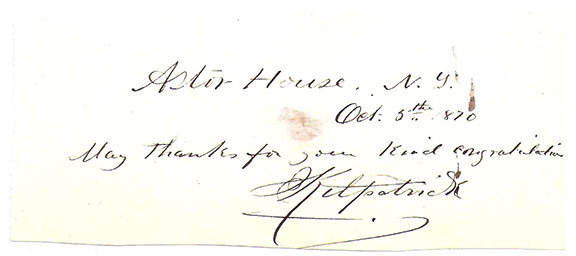 Astor House, N.Y.
Oct. 5th 1870
May thanks for your kind congratulation
JKilpatrick